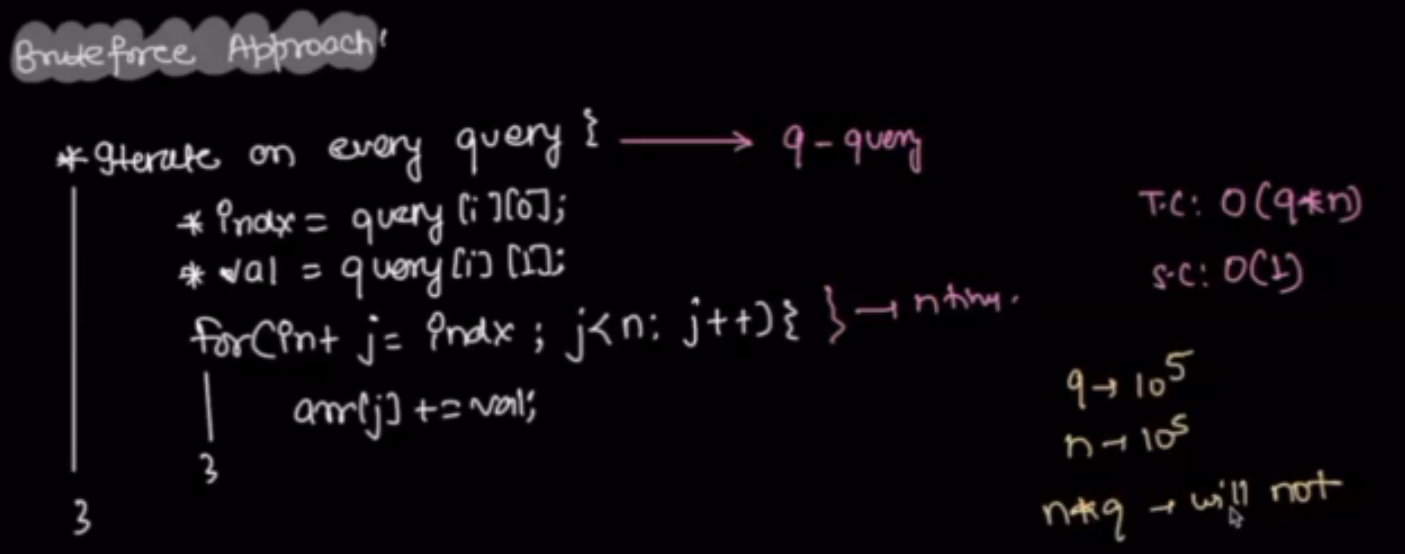 Bruteforce Approach'
* Iterate on every query { → q - query
* indx = query [i][0];
* val = query [i] [1];
for(int j = indx ; j<n; j++){ } → n time.
arr[j] += val;
}
}
T.C: O(q*n)
S.C: O(1)
q → 10^5
n → 10^5
n*q → will not